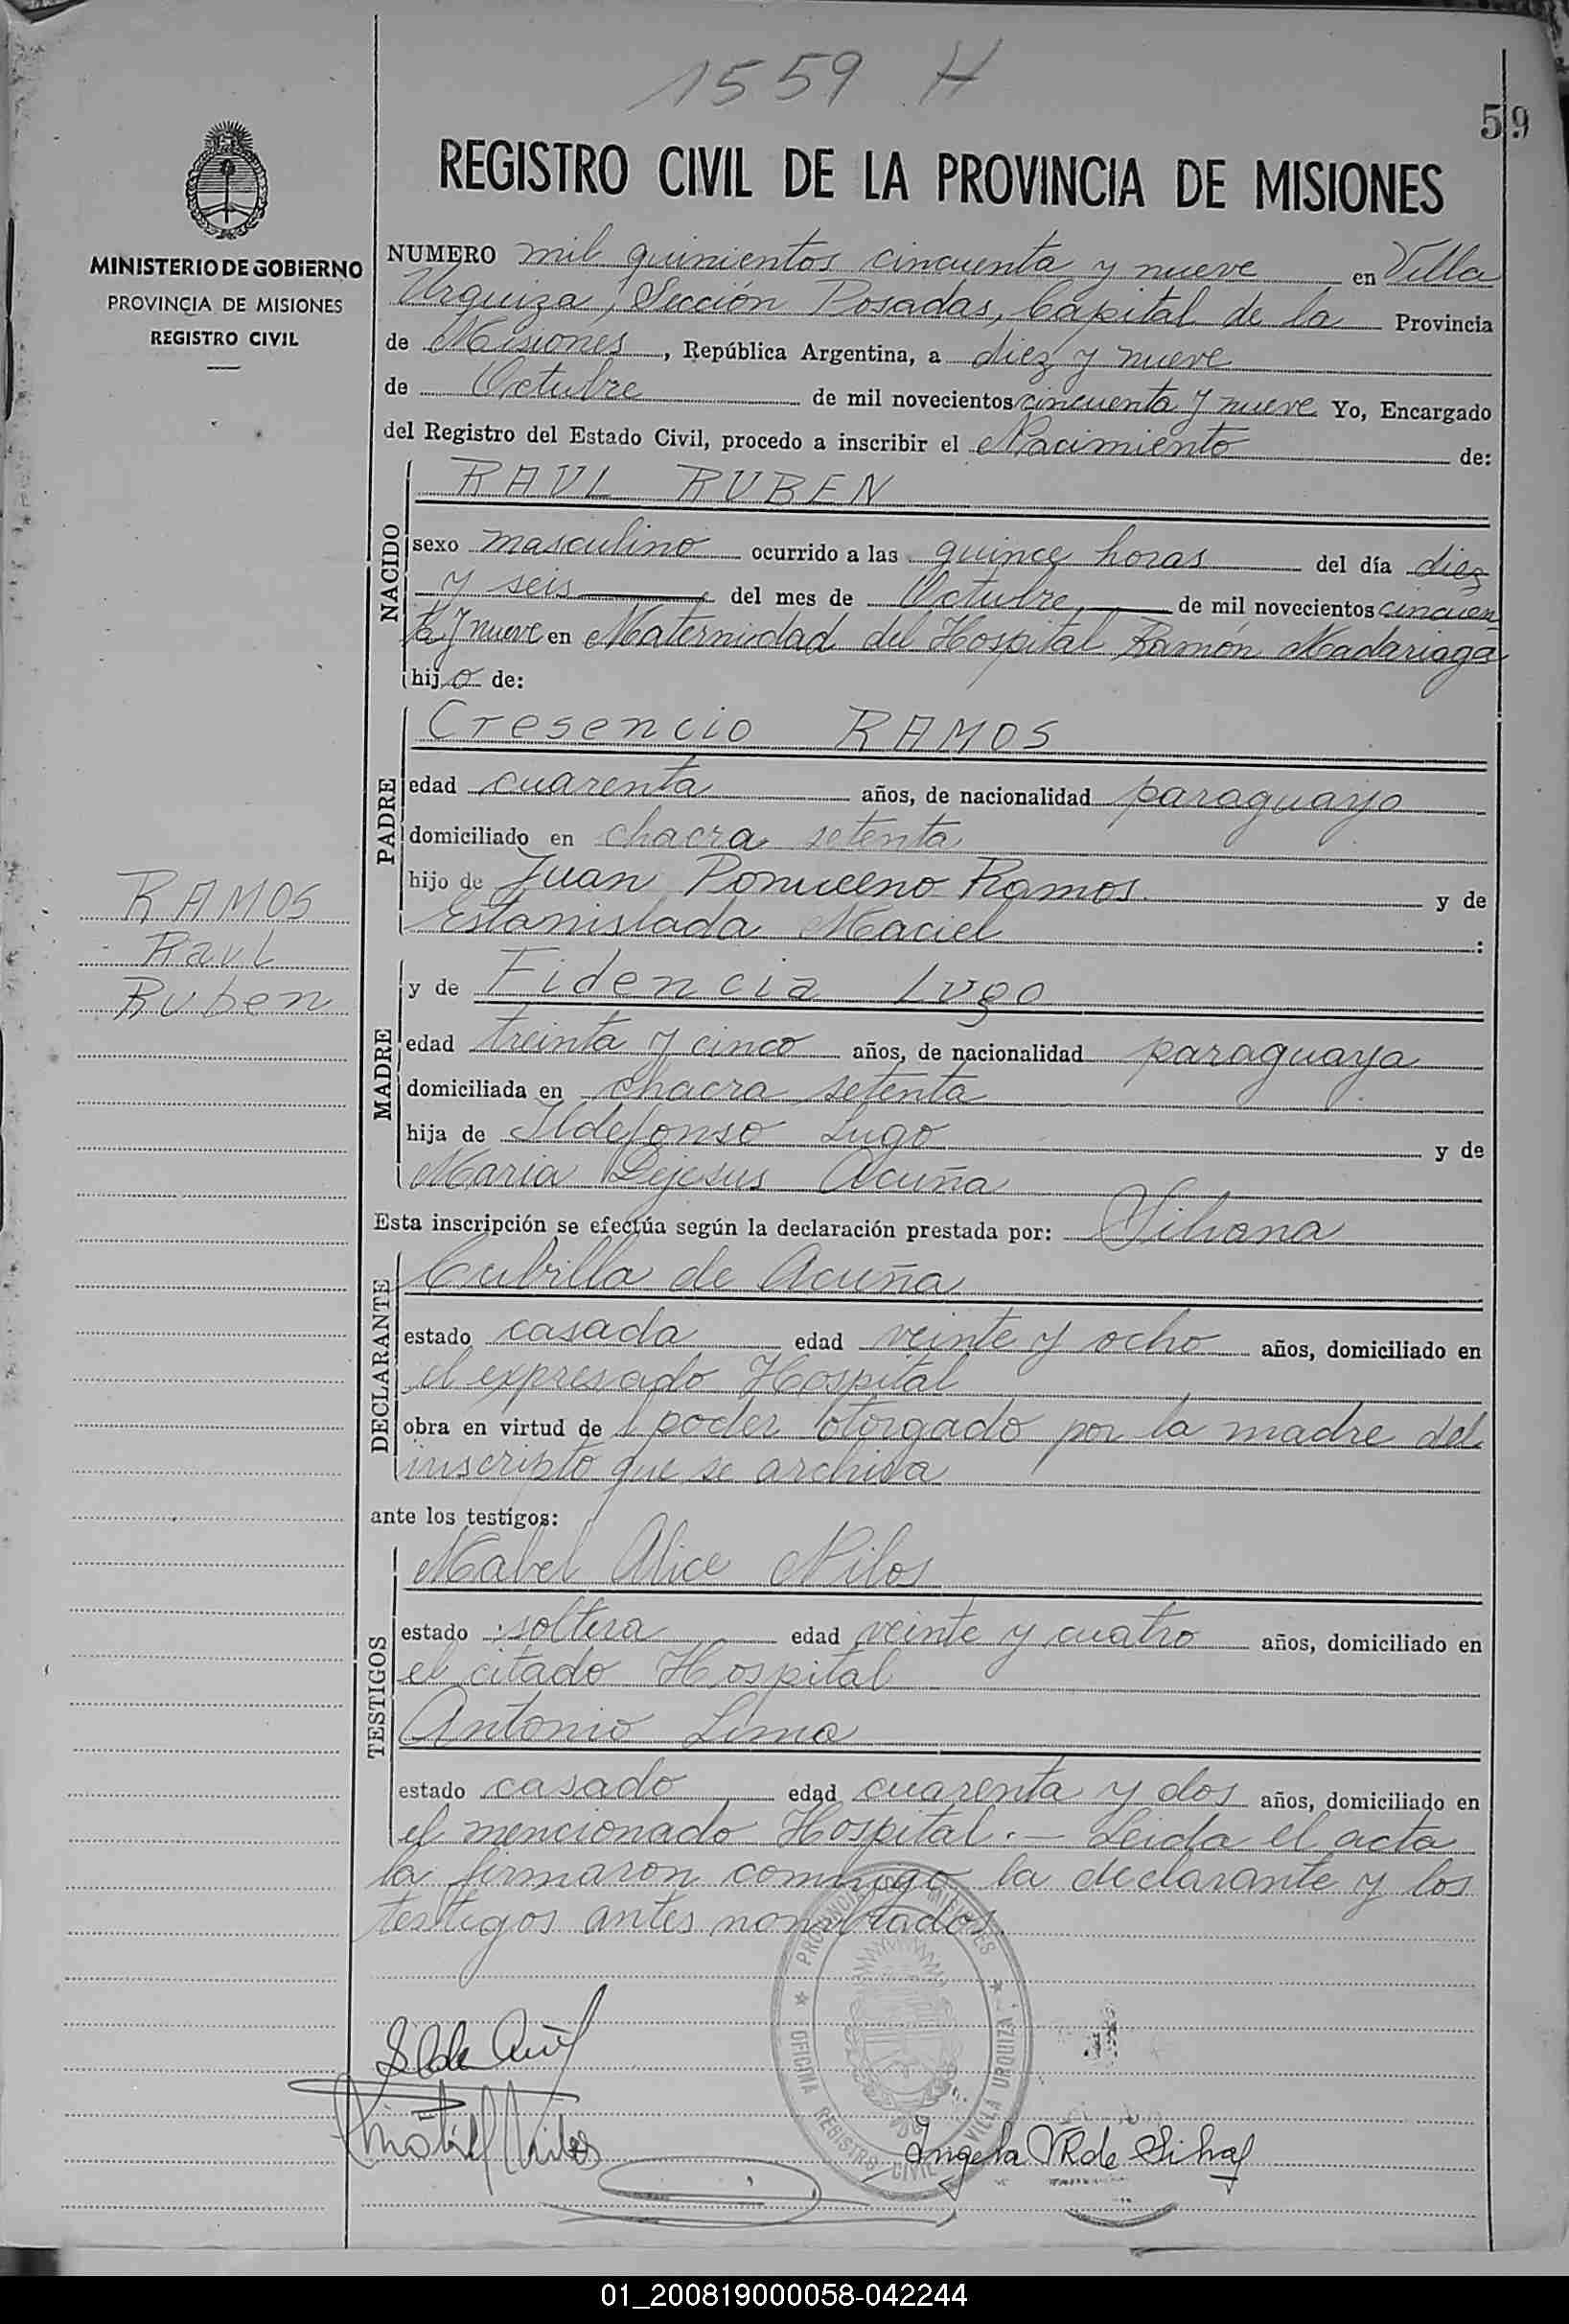 1559 H
59
REGISTRO CIVIL DE LA PROVINCIA DE MISIONES
MINISTERIO DE GOBIERNO
PROVINCIA DE MISIONES
REGISTRO CIVIL
NUMERO mil quinientos cincuenta y nueve en Villa
Urquiza, Sección Posadas, Capital de la Provincia
de Misiones, República Argentina, a diez y nueve
de Octubre de mil novecientos cincuenta y nueve Yo, Encargado
del Registro del Estado Civil, procedo a inscribir el Nacimiento de:
NACIDO
RAUL RUBEN
sexo masculino ocurrido a las quince horas del día diez
y seis del mes de Octubre de mil novecientos cincuen
ta y nueve en Maternidad del Hospital Ramón Madariaga
hijo de:
PADRE
Cresencio RAMOS
edad cuarenta años, de nacionalidad paraguayo
domiciliado en chacra setenta
hijo de Juan Ponuceno Ramos y de
Estanislada Maciel :
RAMOS
Raul
Ruben
MADRE
y de Fidencia Lugo
edad treinta y cinco años, de nacionalidad paraguaya
domiciliada en chacra setenta
hija de Ildefonso Lugo y de
Maria Dejesus Acuña
Esta inscripción se efectúa según la declaración prestada por: Silvana
DECLARANTE
Cubilla de Acuña
estado casada edad veinte y ocho años, domiciliado en
el expresado Hospital
obra en virtud de poder otorgado por la madre del
inscripto que se archiva
ante los testigos:
TESTIGOS
Mabel Alice Nilos
estado soltera edad veinte y cuatro años, domiciliado en
el citado Hospital
Antonio Lima
estado casado edad cuarenta y dos años, domiciliado en
el mencionado Hospital.- Leida el acta
la firmaron conmigo la declarante y los
testigos antes nombrados.
PROVINCIA DE MISIONES
OFICINA REGISTRO CIVIL VILLA URQUIZA
Angela V R de Silva
01_200819000058-042244